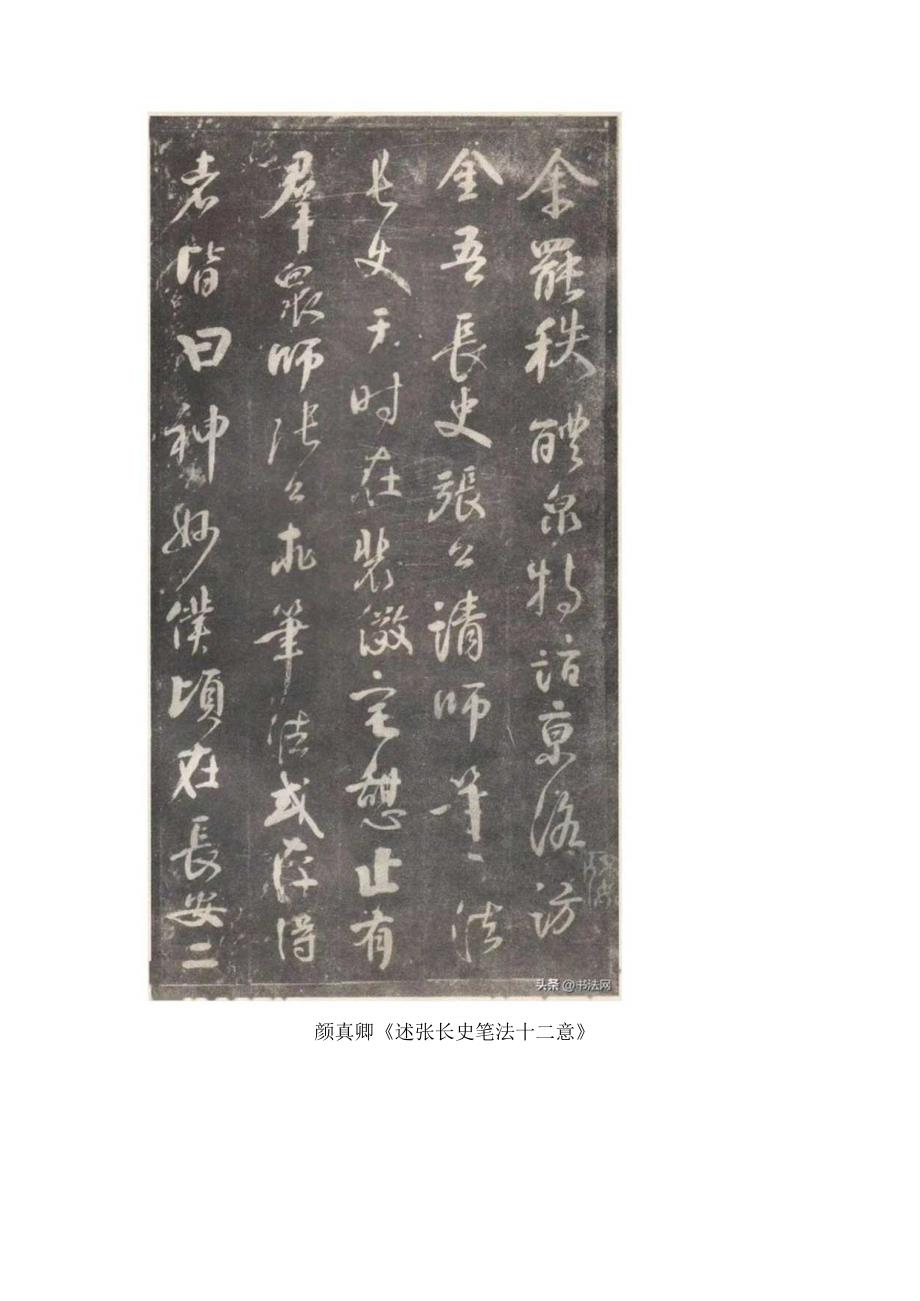 余罷秩醴泉特詣京洛訪
金吾長史張公請師筆法
長史于时在裴儆宅憩止有
羣眾師張公求筆法或存得
者皆曰神妙僕頃在長安二
头条@书法网
颜真卿《述张长史笔法十二意》